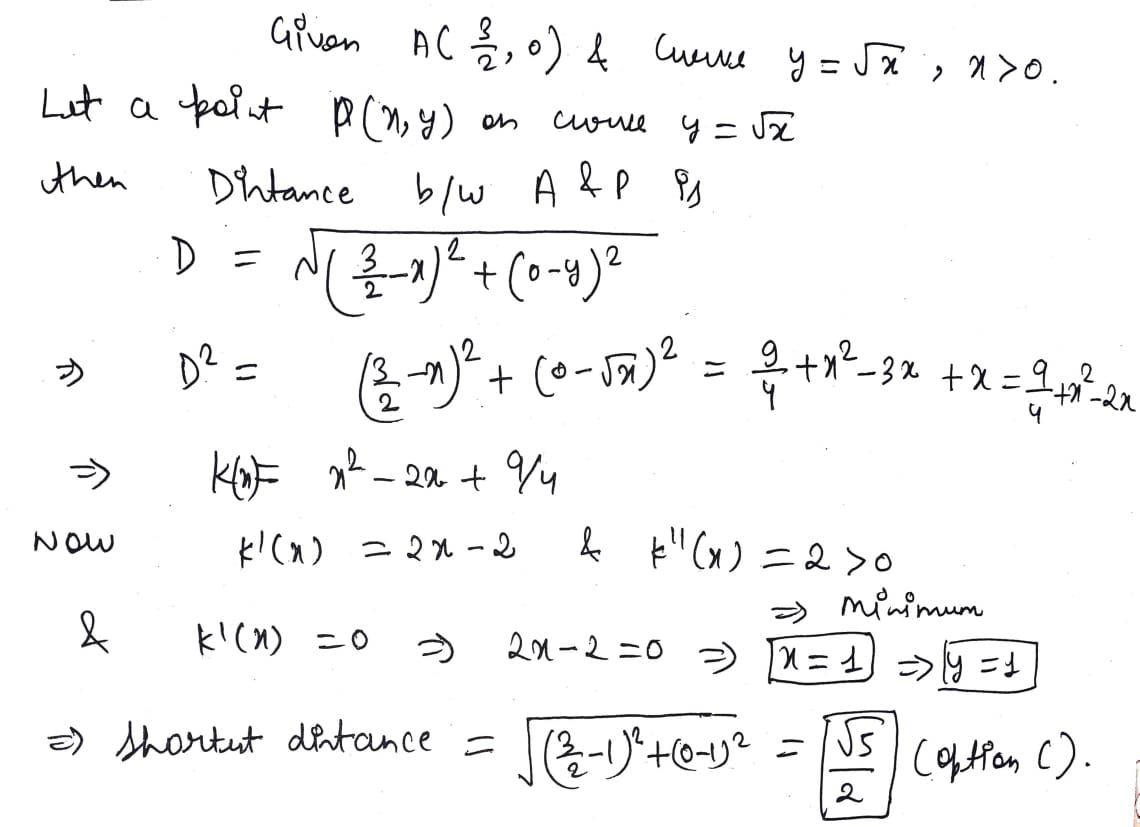 Given A(3/2, 0) & Curve y = √x , x>0.
Let a point P(x, y) on curve y = √x
then Distance b/w A & P is
D = √((3/2 - x)² + (0-y)²)
⇒ D² = (3/2 - x)² + (0-√x)² = 9/4 + x² - 3x + x = 9/4 + x² - 2x
⇒ K(x) = x² - 2x + 9/4
NOW k'(x) = 2x - 2 & k''(x) = 2 > 0
⇒ minimum
& k'(x) = 0 ⇒ 2x-2=0 ⇒ x = 1 ⇒ y = 1
⇒ shortest distance = √((3/2 - 1)² + (0-1)²) = √5/2 (option C).